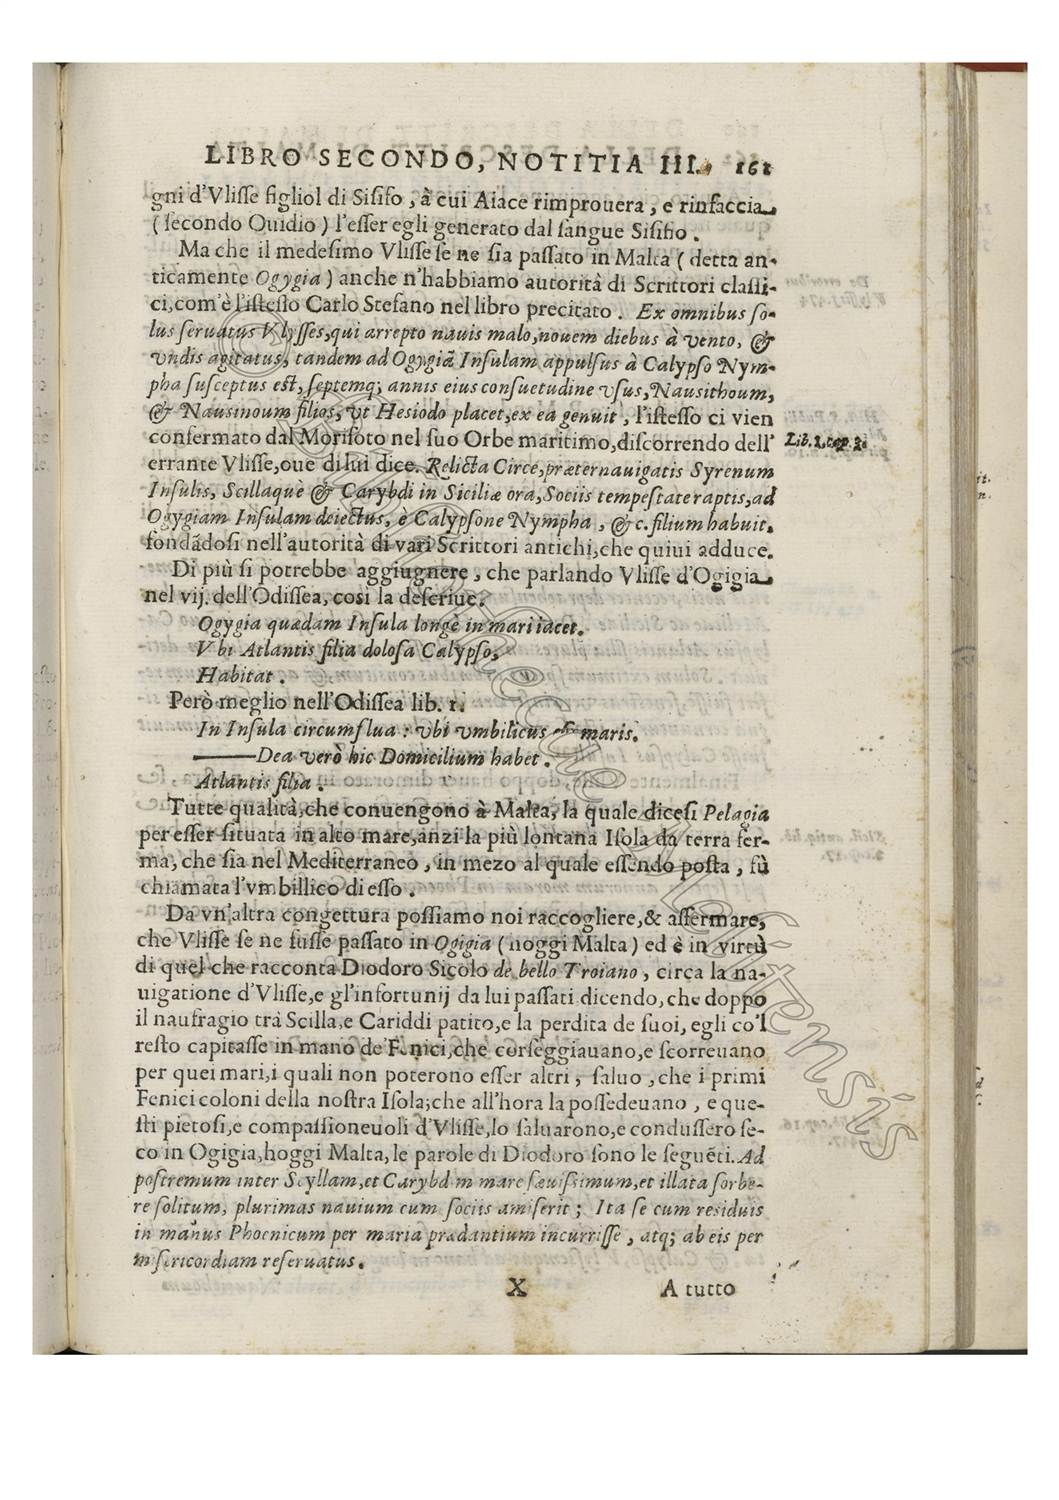 LIBRO SECONDO, NOTITIA III. 161
gni d'Vlisse figliol di Sisifo, à cui Aiace rimprouera, e rinfaccia
(secondo Ouidio) l'esser egli generato dal sangue Sisifio.
Ma che il medesimo Vlisse se ne sia passato in Malta (detta an-
ticamente Ogygia) anche n'habbiamo autorità di Scrittori classi-
ci, com'è l'istesso Carlo Stefano nel libro precitato. Ex omnibus so-
lus seruatus Vlysses, qui arrepto nauis malo, nouem diebus à vento, &
vndis agitatus, tandem ad Ogygiã Insulam appulsus à Calypso Nym-
pha susceptus est, septemq; annis eius consuetudine vsus, Nausithoum,
& Nausinoum filios, vt Hesiodo placet, ex ea genuit, l'istesso ci vien
confermato dal Morisoto nel suo Orbe maritimo, discorrendo dell'
Lib. 1, cap. 3.
errante Vlisse, oue di lui dice. Relicta Circe, præternauigatis Syrenum
Insulis, Scillaquè & Carybdi in Siciliæ ora, Sociis tempestate raptis, ad
Ogygiam Insulam deiectus, è Calypsone Nympha, & c. filium habuit.
fondãdosi nell'autorità di vari Scrittori antichi, che quiui adduce.
Di più si potrebbe aggiugnere, che parlando Vlisse d'Ogigia
nel vij. dell'Odissea, cosi la descriue.
Ogygia quædam Insula longè in mari iacet.
Vbi Atlantis filia dolosa Calypso,
Habitat.
Però meglio nell'Odissea lib. 1.
In Insula circumflua: vbi vmbilicus est maris.
——Dea verò hic Domicilium habet.
Atlantis filia.
Tutte qualità, che conuengono à Malta, la quale dicesi Pelagia
per esser situata in alto mare, anzi la più lontana Isola da terra fer-
ma, che sia nel Mediterraneo, in mezo al quale essendo posta, fù
chiamata l'vmbillico di esso.
Da vn'altra congettura possiamo noi raccogliere, & affermare,
che Vlisse se ne fusse passato in Ogigia (hoggi Malta) ed è in virtù
di quel che racconta Diodoro Sicolo de bello Troiano, circa la na-
uigatione d'Vlisse, e gl'infortunij da lui passati dicendo, che doppo
il naufragio trà Scilla, e Cariddi patito, e la perdita de suoi, egli co'l
resto capitasse in mano de'Fenici, che corseggiauano, e scorreuano
per quei mari, i quali non poterono esser altri, saluo, che i primi
Fenici coloni della nostra Isola; che all'hora la possedeuano, e que-
sti pietosi, e compassioneuoli d'Vlisse, lo saluarono, e condussero se-
co in Ogigia, hoggi Malta, le parole di Diodoro sono le seguẽti. Ad
postremum inter Scyllam, et Carybdim mare sæuissimum, et illata sorbe-
re solitum, plurimas nauium cum sociis amiserit; Ita se cum residuis
in manus Phoenicum per maria prædantium incurrisse, atq; ab eis per
misericordiam reseruatus.
X A tutto